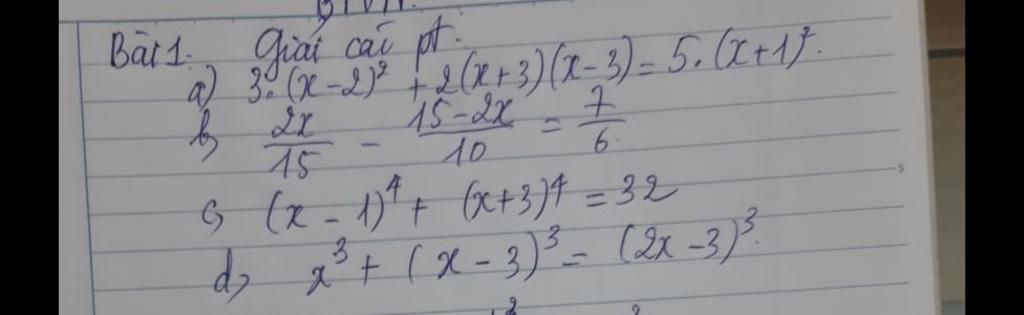 Bài 1. Giải các pt.
a) 3.(x-2)² + 2(x+3)(x-3) = 5.(x+1)².
b, 2x/15 - 15-2x/10 = 7/6.
c, (x-1)⁴ + (x+3)⁴ = 32
d, x³ + (x-3)³ = (2x-3)³.